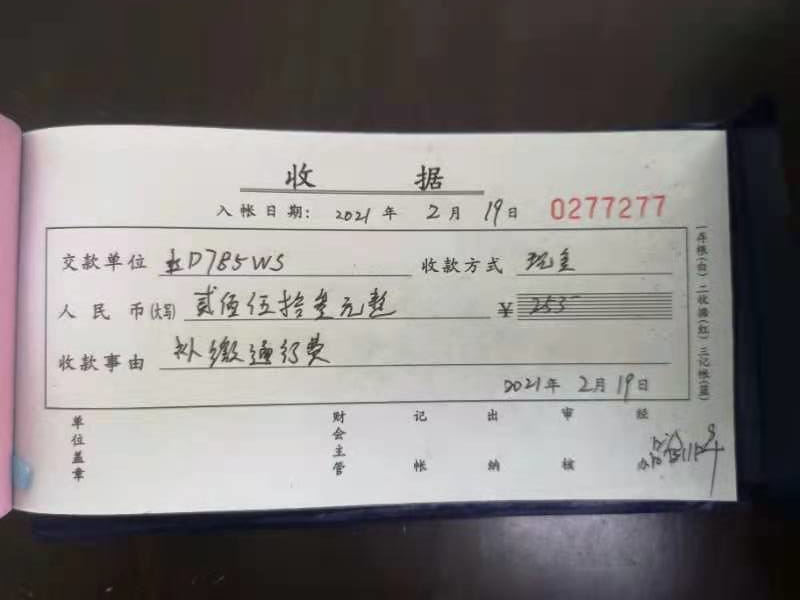 收据
入帐日期: 2021年2月19日 0277277
交款单位 D785WS 收款方式 现金
人民币(大写) 贰佰伍拾叁元整 ¥ 253
收款事由 补缴通行费
2021年2月19日
单位盖章 财会主管 记帐 出纳 审核 经办
一存根(白)二收据(红)三记帐(蓝)